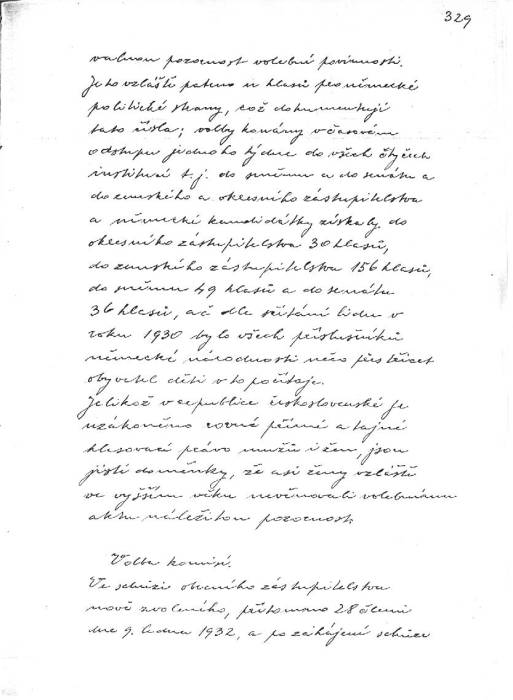 329
valnou pozornost volební povinnosti.
Je to vzláště patrno u hlasů pro německé
politické strany, což dokumentují
tato čísla; volby konány v časovém
odstupu jednoho týdne do všech čtyřech
institucí t. j. do sněmu a do senátu a
do zemského a okresního zástupitelstva
a německé kandidátky získaly do
okresního zástupitelstva 30 hlasů,
do zemského zástupitelstva 156 hlasů,
do sněmu 49 hlasů a do senátu
36 hlasů, ač dle sčítání lidu v
roku 1930 bylo všech příslušníků
německé národnosti něco přes třicet
obyvatel děti v to počítaje.
Jelikož v republice československé je
uzákoněno rovné přímé a tajné
hlasovací právo mužů i žen, jsou
jisté doměnky, že asi ženy vzláště
ve vyšším věku nevěnovali volebnímu
aktu náležitou pozornost.
Volba komisí.
Ve schůzi obecního zástupitelstva
nově zvoleného, přítomno 28 členů
dne 9. ledna 1932, a po zahájení schůze